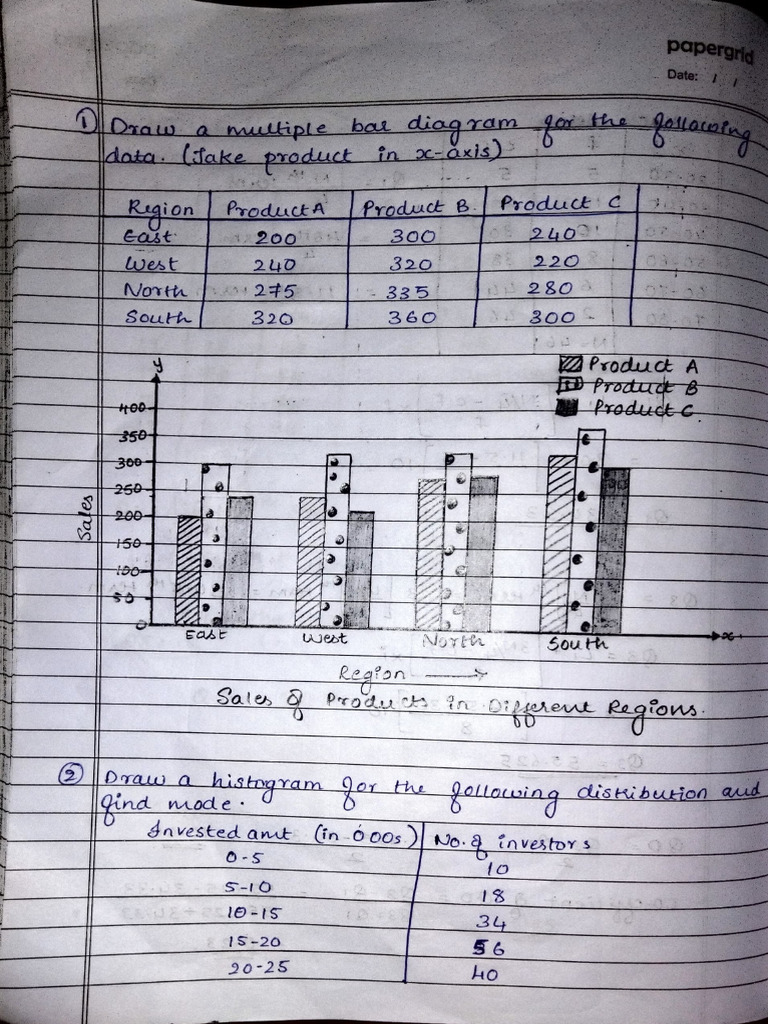 papergrid
Date: / /
1) Draw a multiple bar diagram for the following
data. (Take product in x-axis)
Region Product A Product B. Product C
East 200 300 240
West 240 320 220
North 275 335 280
South 320 360 300
y
Product A
Product B
Product C.
400
350
300
250
200
150
100
50
0
Sales
East West North South x
Region
Sales of Products in Different Regions.
2) Draw a histogram for the following distribution and
find mode.
Invested amt (in 000s.) No. of investors
0-5 10
5-10 18
10-15 34
15-20 56
20-25 40